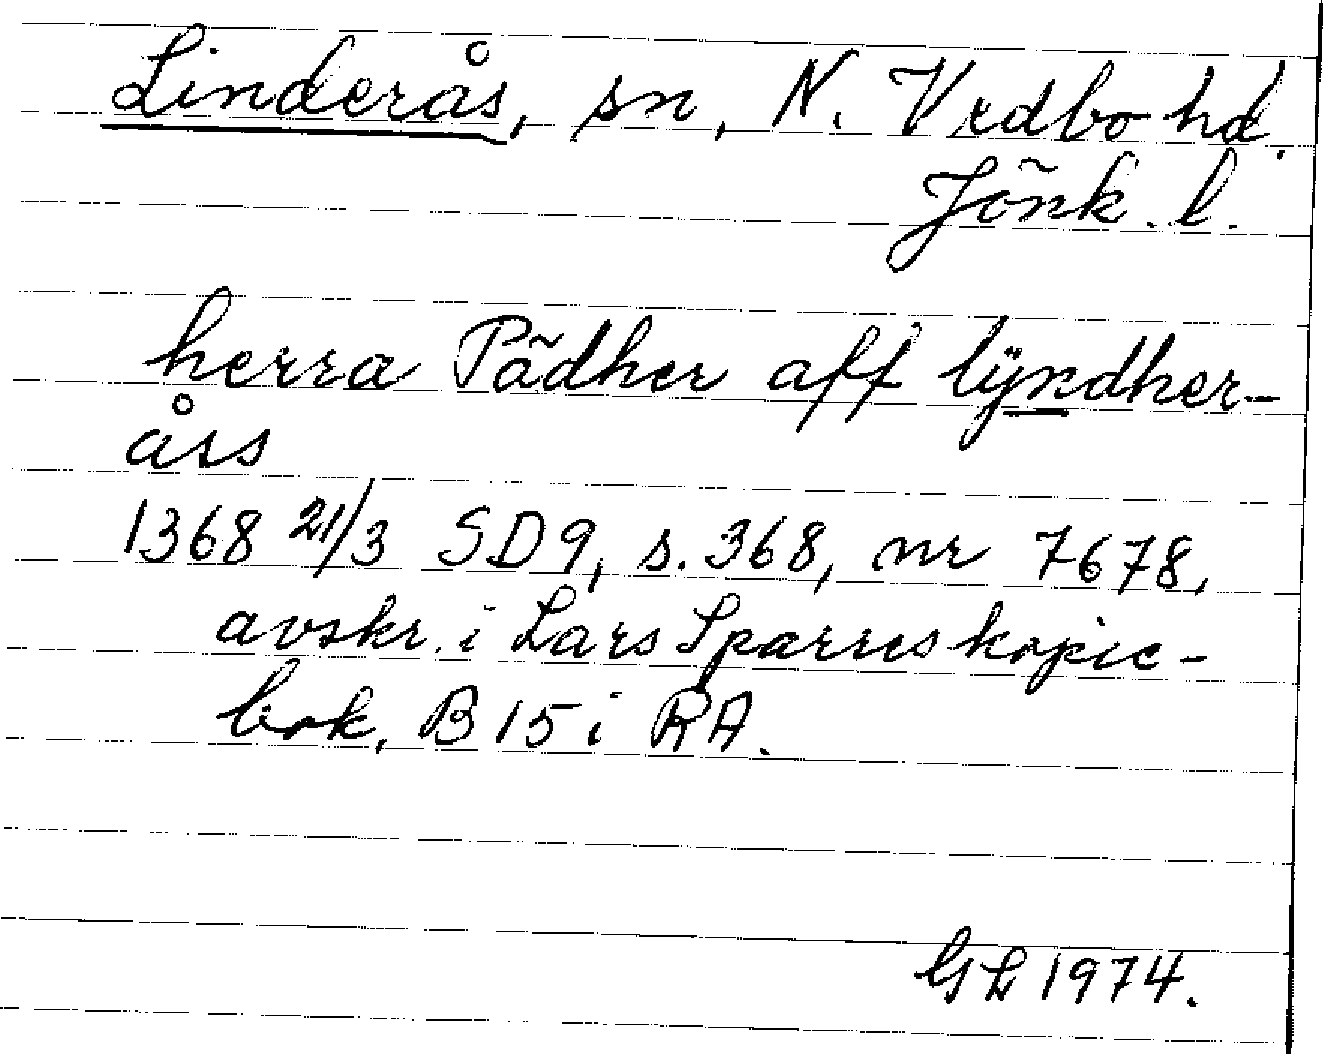 Linderås, sn, N. Vedbo hd.
Jönk. l.
herra Pädher aff lÿndher-
árs
1368 21/3 SD9, s. 368, nr 7678,
avskr. i Lars Sparres kopie-
bok, B 15 i RA.
GL 1974.